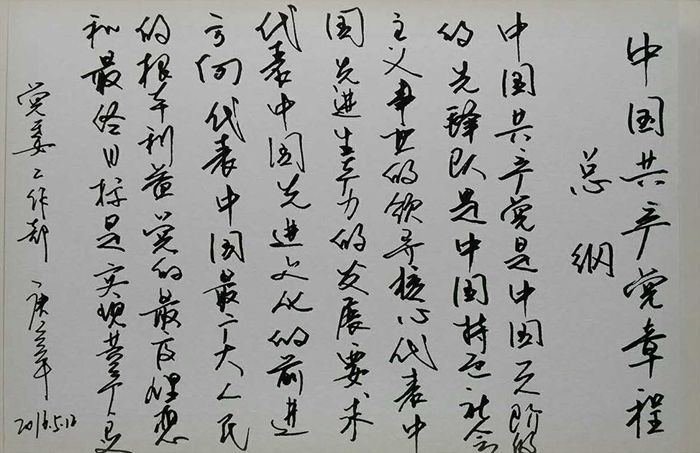 中国共产党章程
总纲
中国共产党是中国阶的
的先锋队是中国特色社会
主义事业的领导核心代表中
国先进生产力的发展要求
代表中国先进文化的前进
方向代表中国最广大人民
的根本利益党的最高理想
和最终目标是实现共产主义
党委工作部
2016.5.12